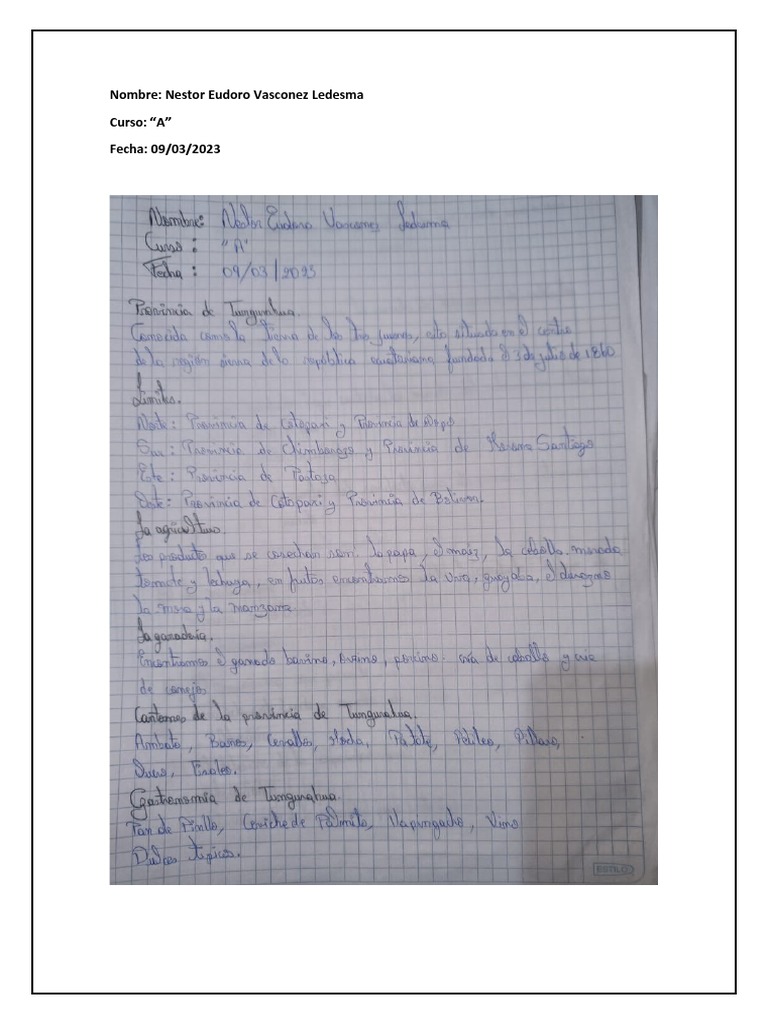 Nombre: Nestor Eudoro Vasconez Ledesma
Curso: “A”
Fecha: 09/03/2023
Nombre: Nestor Eudoro Vasconez Ledesma
Curso : "A"
Fecha : 09/03/2023
Provincia de Tungurahua.
Conocida como la tierra de los tres juanes, esta situada en el centro
de la región sierra de la república ecuatoriana fundada el 3 de julio de 1860
Límites.
Norte: Provincia de Cotopaxi y Provincia de Napo
Sur: Provincia de Chimborazo y Provincia de Morona Santiago
Este: Provincia de Pastaza
Oeste: Provincia de Cotopaxi y Provincia de Bolivar.
La agricultura.
Los producto que se cosechan son: la papa, el maiz, la cebolla morada
tomate y lechuga, en frutas encontramos la uva, guayaba, el durazno
la mora y la manzana.
La ganadería.
Encontramos el ganado bovino, ovino, porcino. cria de caballo y cria
de conejos
Cantones de la provincia de Tungurahua.
Ambato, Baños, Cevallos, Mocha, Patate, Pelileo, Pillaro,
Quero, Tisaleo.
Gastronomía de Tungurahua.
Pan de Pinllo, Ceviche de Palmito, Llapingacho, Vino
Dulces típicos.
ESTILO